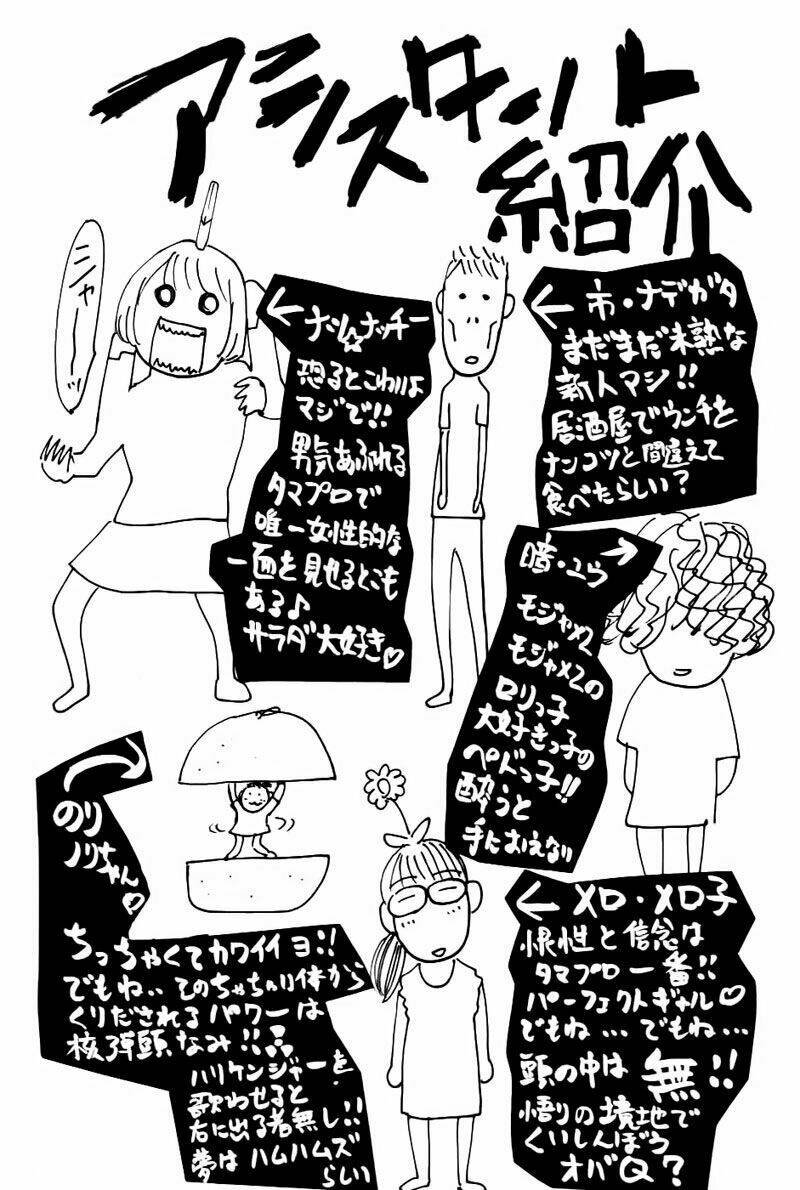 アシスタント
紹介
← 市・ナデガタ
まだまだ未熟な
新人マシ!!
居酒屋でウンチを
ナンコツと間違えて
食べたらしい?
←ナシ☆ナッチー
怒るとこわいよ
マジで!!
男気あふれる
タマプロで
唯一女性的な
一面を見せるとこも
ある♪
サラダ大好き♡
ニャーッ
暗・ユウ→
モジャメZ
モジャメZの
ロリっ子
大好きっ子の
ペドっ子!!
酔うと
手におえない
のり
ノリちゃん♡
ちっちゃくてカワイイヨ!!
でもね..そのちゃちい体から
くりだされるパワーは
核弾頭なみ!!
ハリケンジャーを
歌わせると
右に出る者無し!!
夢はハムハムズ
らしい
←メロ・メロ子
根性と信念は
タマプロ一番!!
パーフェクトギャル♡
でもね…でもね…
頭の中は無!!
悟りの境地で
くいしんぼう
オバQ?